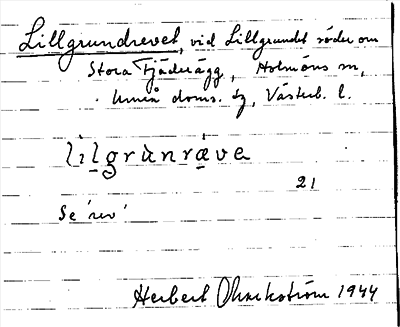 Lillgrundrevet, vid Lillgrundet söder om
Stora Fjäderägg, Holmöns sn,
Umeå doms. tg, Västerb. l.
lìlgrùnrǽve
21
Se 'rev'
Herbert Ohrnström 1944